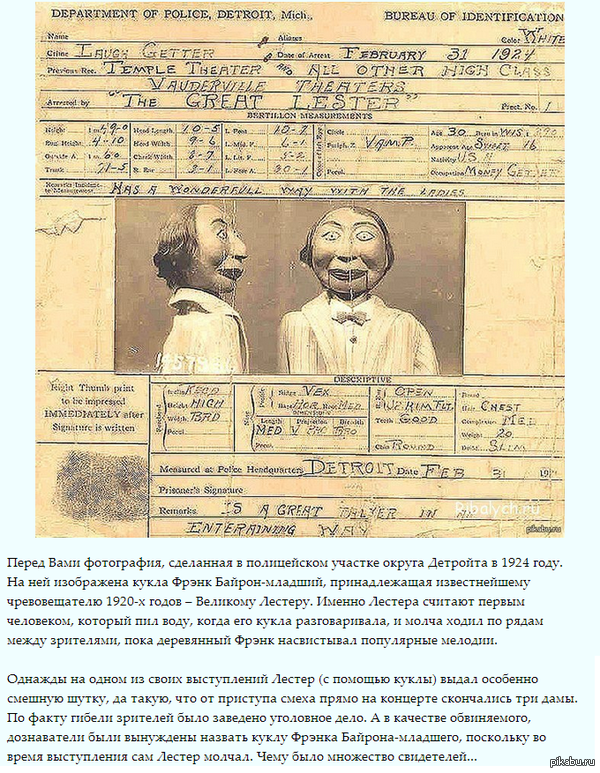 DEPARTMENT OF POLICE, DETROIT, Mich., BUREAU OF IDENTIFICATION
Name Aliases Color WHITE
Crime LAUGH GETTER Date of Arrest FEBRUARY 31 1924
Previous Rec. TEMPLE THEATER AND ALL OTHER HIGH CLASS
VAUDERVILLE THEATERS
Arrested by "THE GREAT LESTER" Prect. No. 1
BERTILLON MEASUREMENTS
Height Head Length 10-5 L. Foot 10-7 Circle Age 30 Born in WIS.
Eng. Height 4-10 Head Width 9-6 L. Mid. F. 6-1 Periph. Z VAMP. Apparent Age SWEET 16
Outside A. Cheek Width L. Lit. F. 5-2 Nativity
Trunk R. Ear L. Fore A. Pecul. Occupation MONEY GETTER
Remarks Incident to Measurement HAS A WONDERFULL WAY WITH THE LADIES
DESCRIPTIVE
Right Thumb print
to be impressed
IMMEDIATELY after
Signature is written
Height HIGH Ridge VEX OPEN
Width BRD Base HOR Root MED Hair CHEST
Length Projection Breadth Teeth GOOD Complexion MED
MED Weight 20
Pecul. Chin ROUND Build SLIM
Measured at Police Headquarters DETROIT Date FEB 31 19
Prisoner's Signature
Remarks IS A GREAT TALKER IN AN
ENTERAINING WAY
kibalych.ru
pikabu.ru
Перед Вами фотография, сделанная в полицейском участке округа Детройта в 1924 году.
На ней изображена кукла Фрэнк Байрон-младший, принадлежащая известнейшему
чревовещателю 1920-х годов – Великому Лестеру. Именно Лестера считают первым
человеком, который пил воду, когда его кукла разговаривала, и молча ходил по рядам
между зрителями, пока деревянный Фрэнк насвистывал популярные мелодии.
Однажды на одном из своих выступлений Лестер (с помощью куклы) выдал особенно
смешную шутку, да такую, что от приступа смеха прямо на концерте скончались три дамы.
По факту гибели зрителей было заведено уголовное дело. А в качестве обвиняемого,
дознаватели были вынуждены назвать куклу Фрэнка Байрона-младшего, поскольку во
время выступления сам Лестер молчал. Чему было множество свидетелей...
pikabu.ru